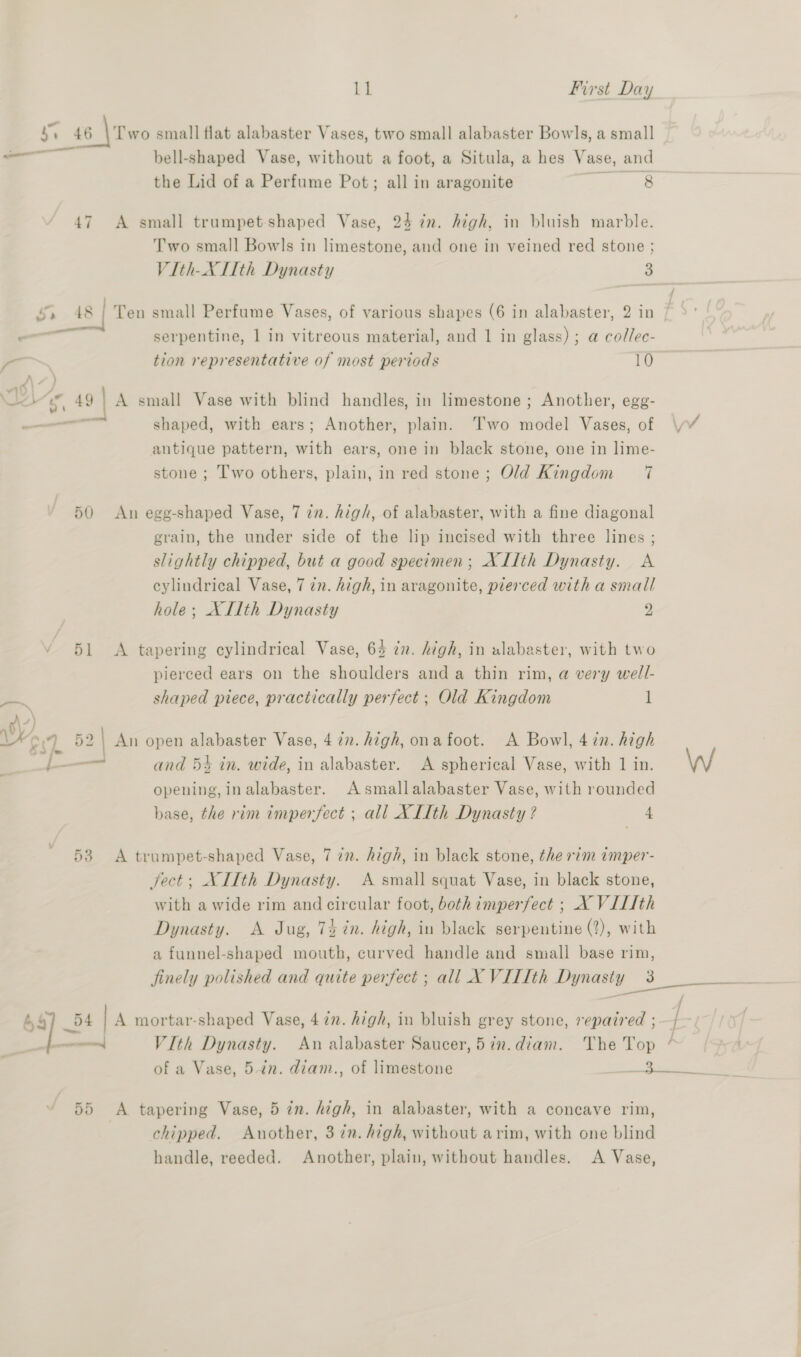 11 First Day
46 Two small flat alabaster Vases, two small alabaster Bowls, a small
bell-shaped Vase, without a foot, a Situla, a hes Vase, and
the Lid of a Perfume Pot; all in aragonite 8
47 A small trumpet shaped Vase, 2½ in. high, in bluish marble.
Two small Bowls in limestone, and one in veined red stone;
VIth-XIIth Dynasty 3
48 Ten small Perfume Vases, of various shapes (6 in alabaster, 2 in
serpentine, 1 in vitreous material, and 1 in glass); a collec-
tion representative of most periods 10
49 A small Vase with blind handles, in limestone; Another, egg-
shaped, with ears; Another, plain. Two model Vases, of
antique pattern, with ears, one in black stone, one in lime-
stone; Two others, plain, in red stone; Old Kingdom 7
50 An egg-shaped Vase, 7 in. high, of alabaster, with a fine diagonal
grain, the under side of the lip incised with three lines;
slightly chipped, but a good specimen; XIIth Dynasty. A
cylindrical Vase, 7 in. high, in aragonite, pierced with a small
hole; XIIth Dynasty 2
51 A tapering cylindrical Vase, 6½ in. high, in alabaster, with two
pierced ears on the shoulders and a thin rim, a very well-
shaped piece, practically perfect; Old Kingdom 1
52 An open alabaster Vase, 4 in. high, on a foot. A Bowl, 4 in. high
and 5½ in. wide, in alabaster. A spherical Vase, with 1 in.
opening, in alabaster. A small alabaster Vase, with rounded
base, the rim imperfect; all XIIth Dynasty? 4
53 A trumpet-shaped Vase, 7 in. high, in black stone, the rim imper-
fect; XIIth Dynasty. A small squat Vase, in black stone,
with a wide rim and circular foot, both imperfect; XVIIIth
Dynasty. A Jug, 7½ in. high, in black serpentine (?), with
a funnel-shaped mouth, curved handle and small base rim,
finely polished and quite perfect; all XVIIIth Dynasty 3
54 A mortar-shaped Vase, 4 in. high, in bluish grey stone, repaired;
VIth Dynasty. An alabaster Saucer, 5 in. diam. The Top
of a Vase, 5 in. diam., of limestone 3
55 A tapering Vase, 5 in. high, in alabaster, with a concave rim,
chipped. Another, 3 in. high, without a rim, with one blind
handle, reeded. Another, plain, without handles. A Vase,